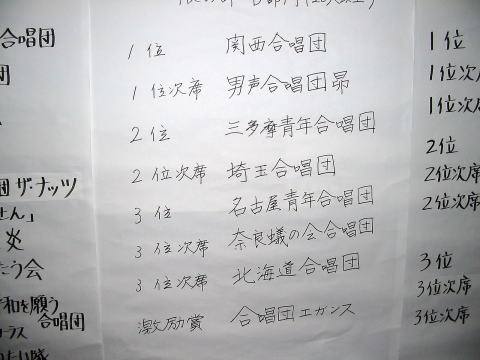 合唱団
団
団 ザ・ナッツ
せん」
炎
たう会
和を願う
合唱団
1位 関西合唱団
1位次席 男声合唱団昴
2位 三多摩青年合唱団
2位次席 埼玉合唱団
3位 名古屋青年合唱団
3位次席 奈良蟻の会合唱団
3位次席 北海道合唱団
激励賞 合唱団エガンス
1位
1位次席
1位次
2位
2位次席
2位次席
3位
3位次席
3位次席